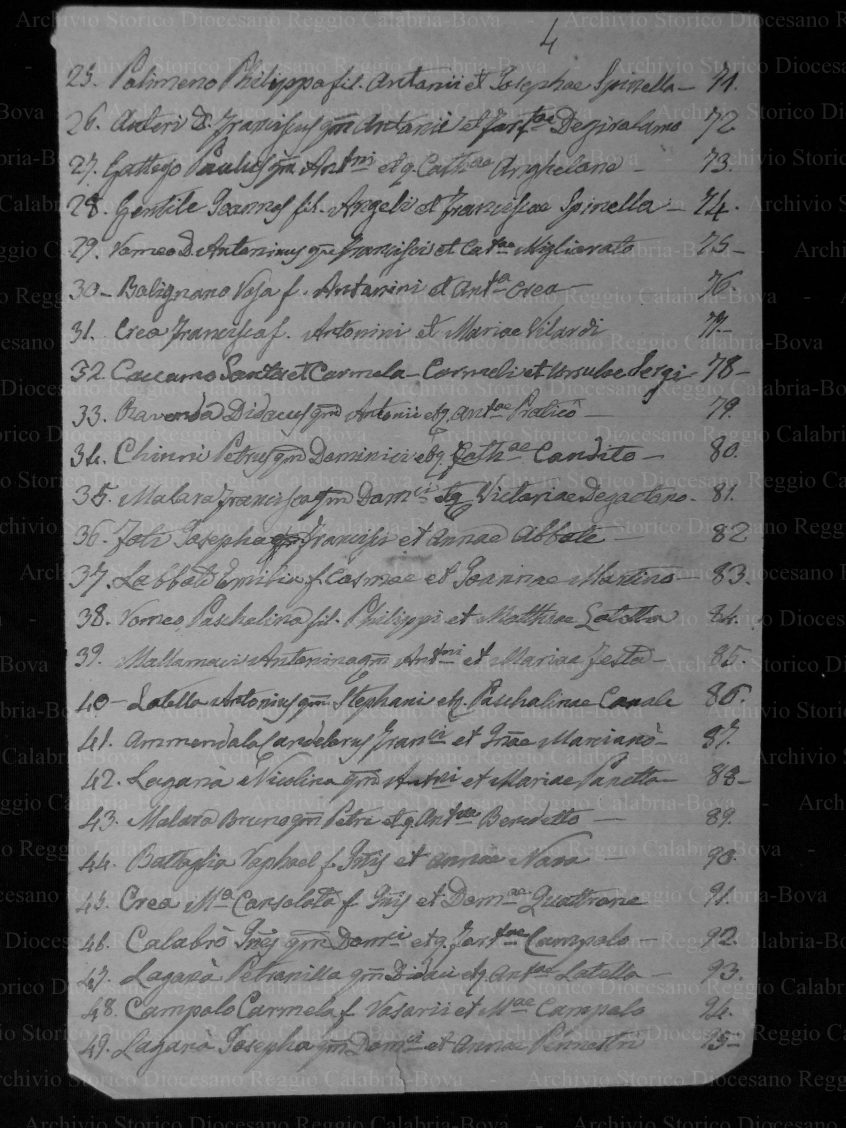 4
25. Palimeno Philippa fil. Antonii et Josephae Spinella - 71.
26. Auteri D. Franciscus qm Antonii et Fortae Degirolamo 72
27. Gattego Paulus qm Antni et q. Cathae - 73.
28. Gentile Joannes fil. Angeli et Franciscae Spinella - 74.
29. Romeo D. Antoninus qm Francisci et Catae Migliorato 75 -
30 - Balignano Rosa f. Antonini et Anta Crea - 76.
31. Crea Francisca f. Antonini et Mariae Vilardi 77 -
32 Caccamo Santa et Carmela - Carmeli et Ursulae Sergi 78 -
33. Ravenda Didacus qm Antonii et q. Antae Praticò - 79.
34. Chinni Petrus qm Dominici et q. Cathae Candito - 80.
35. Malara Francisca qm Domci et q. Victoriae Degaetano. 81.
36. Foti Josepha qm Francisci et Annae Abbate - 82
37. Labbate Emilia f. Cosmae et Joannae Martino - 83.
38. Romeo Paschalina fil. Philippi et Matthiae Latella 84.
39. Mallamacis Antonina qm Antni et Mariae Festa - 85.
40 - Latella Antonius qm Stephani et q. Paschalinae Canale 86.
41. Ammendola Candelorus Franci et Jnae Marcianò - 87.
42. Laganà Nicolina qm Antni et Mariae Panetta - 88 -
43. Malara Bruno qm Petri et q. Antae Benedetto - 89.
44. Battaglia Raphael f. Jnis et Annae Nava - 90.
45. Crea Ma Consolata f. Jnis et Domae Quattrone 91.
46. Calabrò Jnes qm Domci et q. Fortae Campolo - 92.
47. Laganà Petronilla qm Didaci et q. Antae Latella - 93.
48. Campolo Carmela f. Rosarii et Mae Campolo 94.
49. Laganà Josepha qm Domci et Annae Pennestrì 95 -
Archivio Storico Diocesano Reggio Calabria-Bova